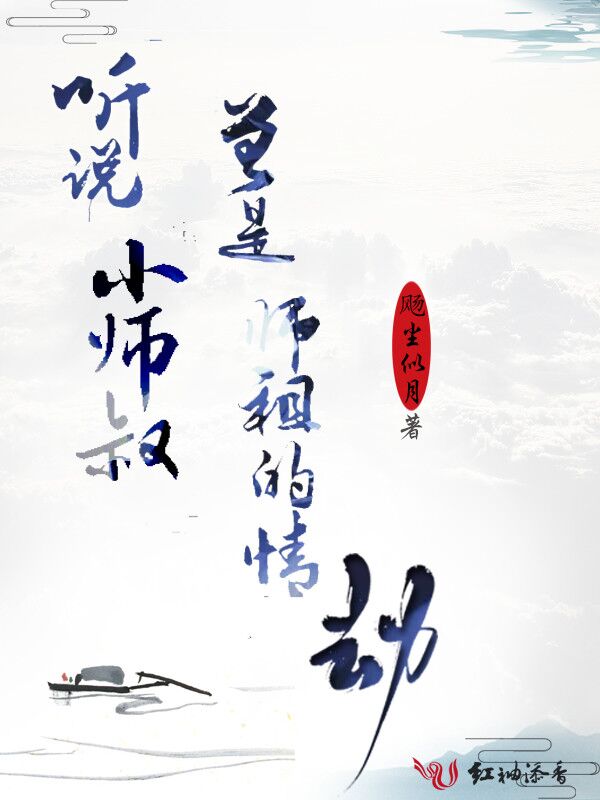 听说小师叔
曾是师祖的情劫
飏尘似月著
红袖添香